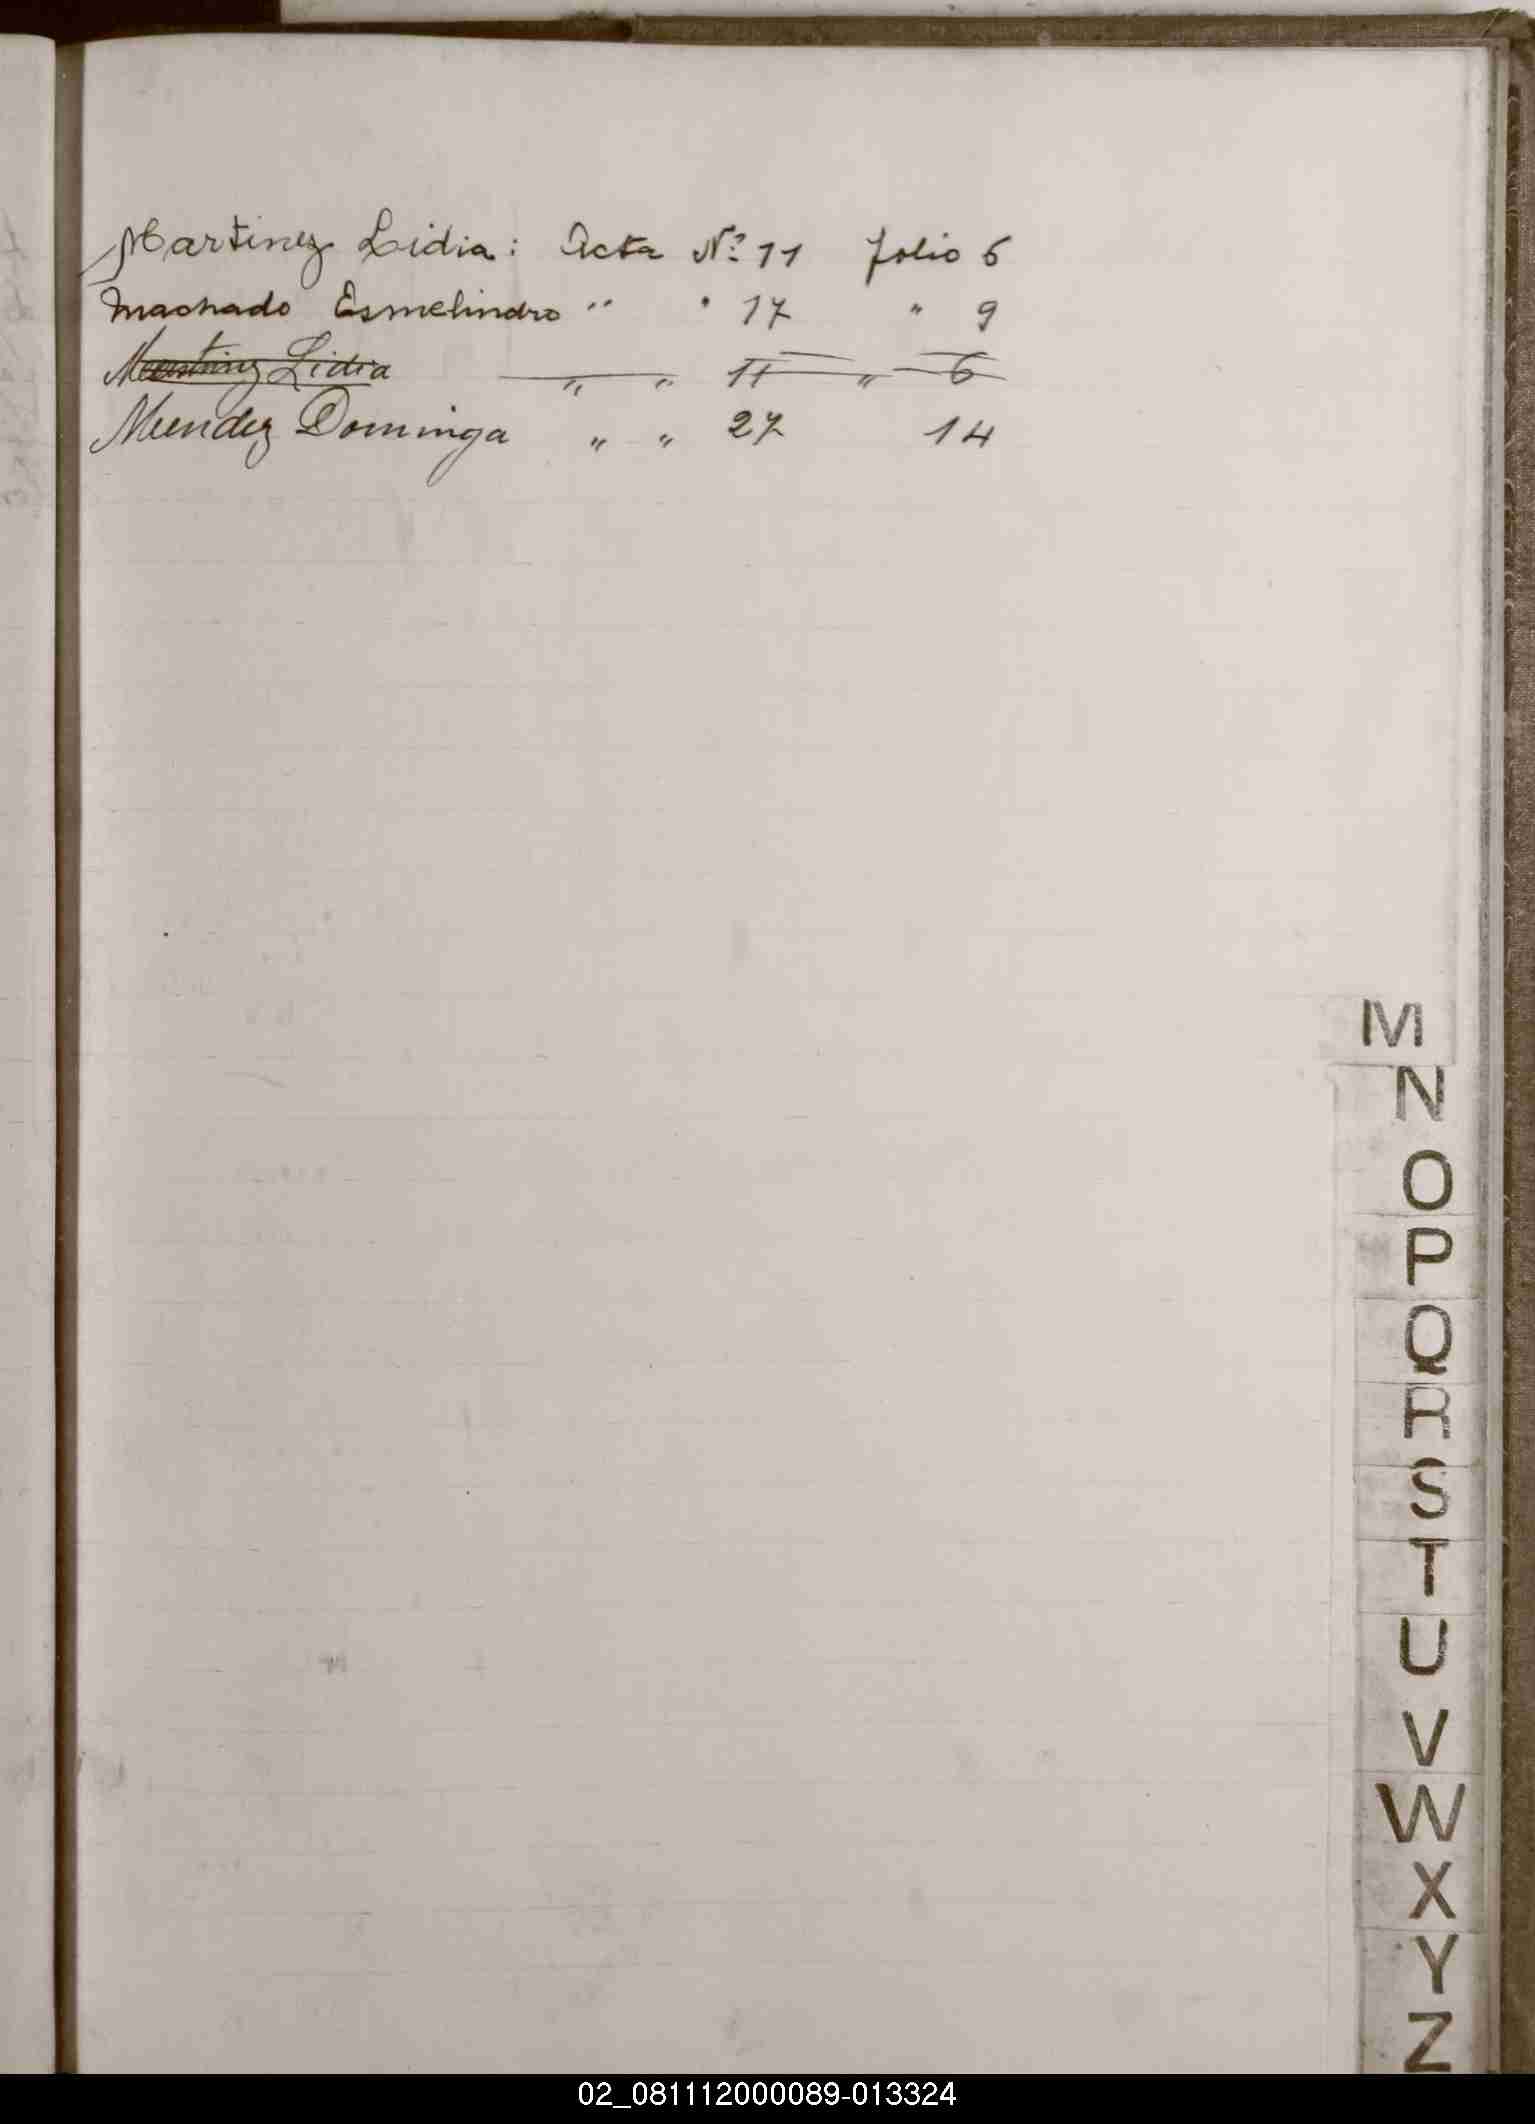 Martinez Lidia: Acta Nº 11 folio 6
Machado Esmelindro " " 17 " 9
Martinez Lidia " " 11 " 6
Mendez Dominga " " 27 14
M
N
O
P
Q
R
S
T
U
V
W
X
Y
Z
02_081112000089-013324